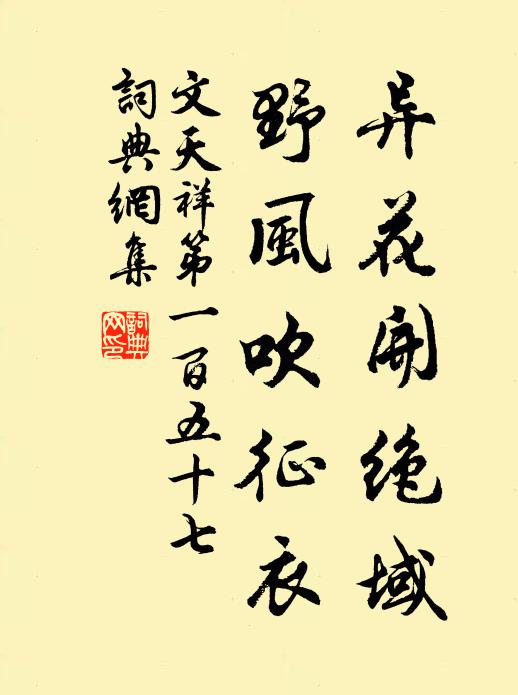 异花開絶域
野風吹征衣
文天祥第一百五十七
詞典網集
詞典網印